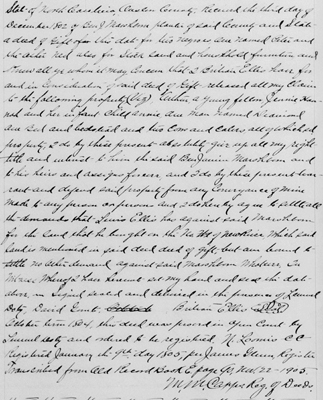 State of North Carolina County. Received the third day of
December 1802 of Benj Marshborn planter of said County and State
a deed of Gift of this date for his negroes one named Peter and
the other Ned also for Stock land and household furniture and
Know all ye whom it may concern that I Britain Ellis have for
and in Consideration of said deed of Gift released all my claim
to the following property (Viz) a young fellow Jennie Han-
nah and her infant child annie one man named
one Bed and bedstead and two Cows and Calves all of which said
property I do by these present absolutely give up all my right
title and interest to him the said Benjamin Marshborn and
to his heirs and assigns forever, and I do by these present war-
rant and defend said property from any Conveyance of mine
made to any person or persons and I do hereby agree to settle all
the demands that Lewis Ellis has against said Marshborn
for the Land that he bought on the No Et of New River which said
land is mentioned in said deed of gift but am bound to
settle no other demand against said Marshborn. In
Witness Whereof I have hereunto set my hand and seal the date
above in Signed sealed and delivered in the presence of Lemuel
Doty David Britain Ellis Seal
October term 1804, this deed was proved in open Court by
Lemuel Doty and ordered to be registered N. Loomis CC
Registered January the 9th day 1805 per James Glenn, Register
Transcribed from Old Record Book E page Nov 22 - 1905.
Reg of Deeds.